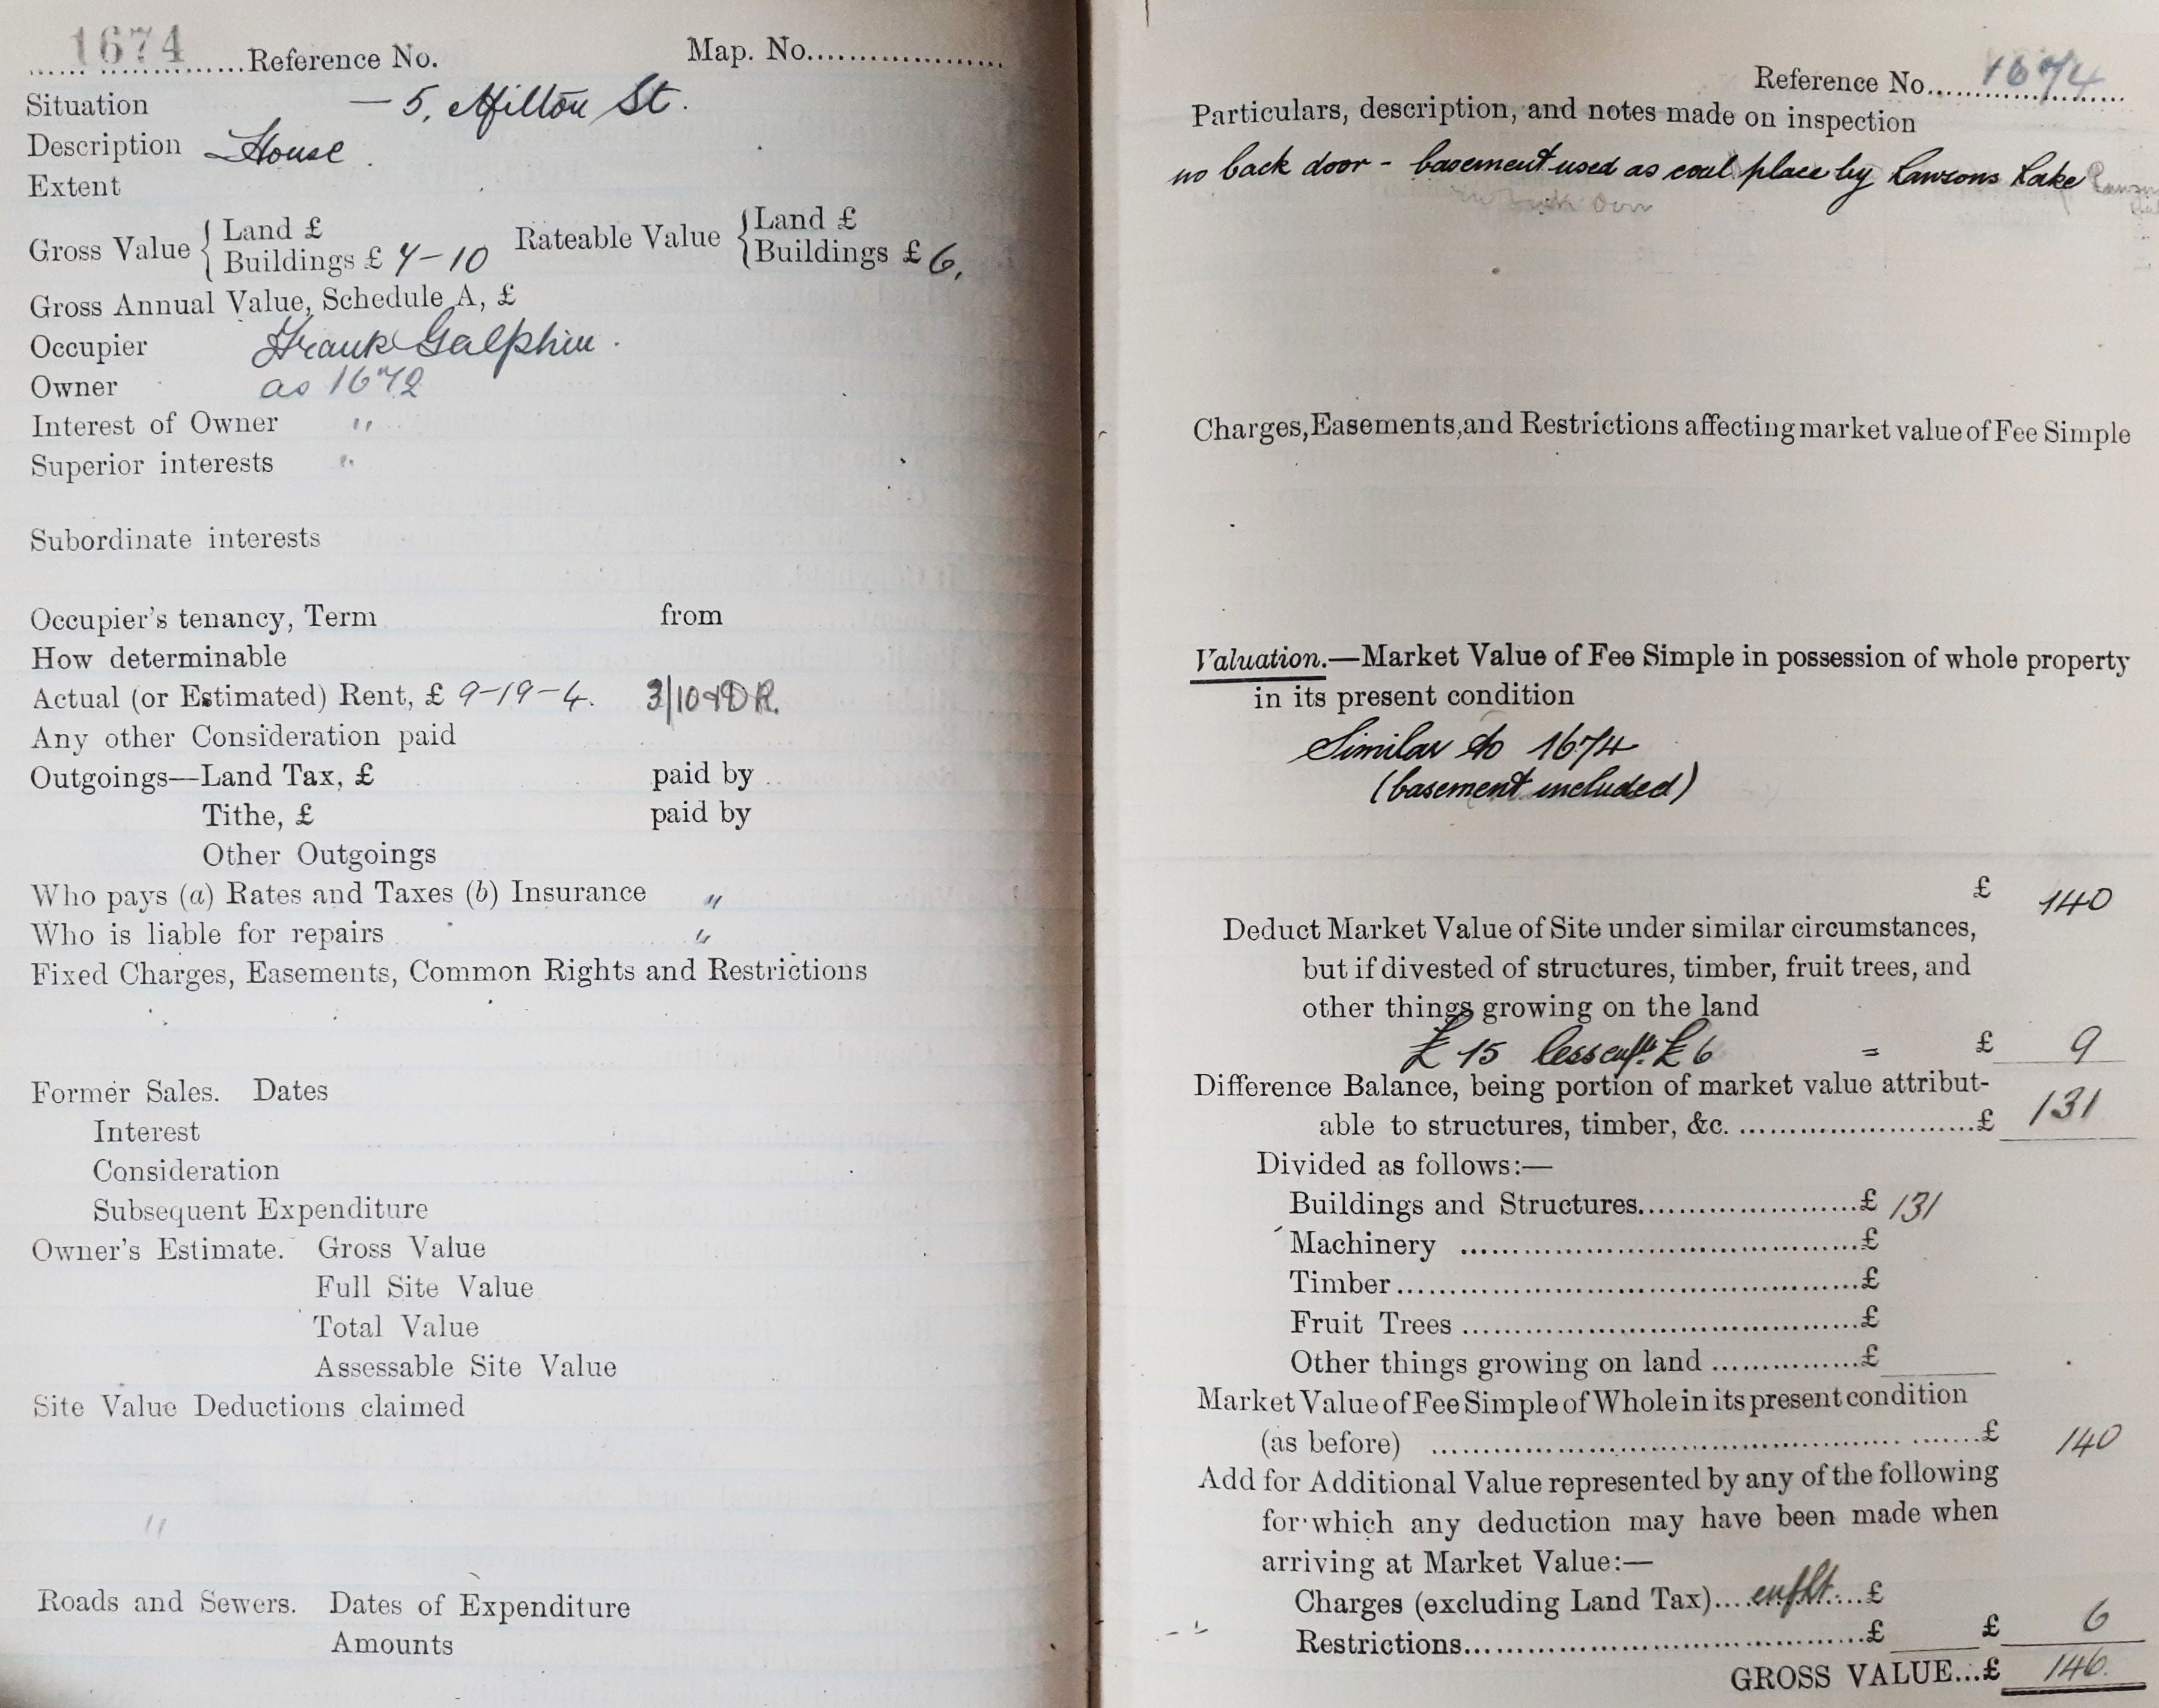 1674 Reference No. Map. No.
Situation — 5, Milton St.
Description House.
Extent
Gross Value { Land £
Buildings £ 7-10 Rateable Value { Land £
Buildings £ 6,
Gross Annual Value, Schedule A, £
Occupier Frank Galphin.
Owner as 1672
Interest of Owner "
Superior interests "
Subordinate interests
Occupier's tenancy, Term from
How determinable
Actual (or Estimated) Rent, £ 9-19-4. 3/10
Any other Consideration paid
Outgoings—Land Tax, £ paid by
Tithe, £ paid by
Other Outgoings
Who pays (a) Rates and Taxes (b) Insurance "
Who is liable for repairs "
Fixed Charges, Easements, Common Rights and Restrictions
Former Sales. Dates
Interest
Consideration
Subsequent Expenditure
Owner's Estimate. Gross Value
Full Site Value
Total Value
Assessable Site Value
Site Value Deductions claimed
"
Roads and Sewers. Dates of Expenditure
Amounts
Reference No. 1674
Particulars, description, and notes made on inspection
no back door - basement used as coal place by Lawsons Lake
Charges, Easements, and Restrictions affecting market value of Fee Simple
Valuation.—Market Value of Fee Simple in possession of whole property
in its present condition
Similar to 1674
(basement included)
£ 140
Deduct Market Value of Site under similar circumstances,
but if divested of structures, timber, fruit trees, and
other things growing on the land
£15 less £6 = £ 9
Difference Balance, being portion of market value attribut-
able to structures, timber, &c. £ 131
Divided as follows:—
Buildings and Structures £ 131
Machinery £
Timber £
Fruit Trees £
Other things growing on land £
Market Value of Fee Simple of Whole in its present condition
(as before) £ 140
Add for Additional Value represented by any of the following
for which any deduction may have been made when
arriving at Market Value:—
Charges (excluding Land Tax) £
Restrictions £ £ 6
GROSS VALUE...£ 146.